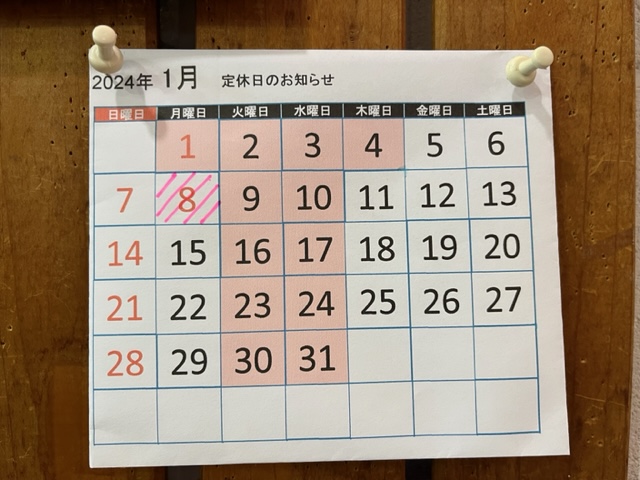 2024年 1月 定休日のお知らせ
日曜日 月曜日 火曜日 水曜日 木曜日 金曜日 土曜日
1 2 3 4 5 6
7 8 9 10 11 12 13
14 15 16 17 18 19 20
21 22 23 24 25 26 27
28 29 30 31